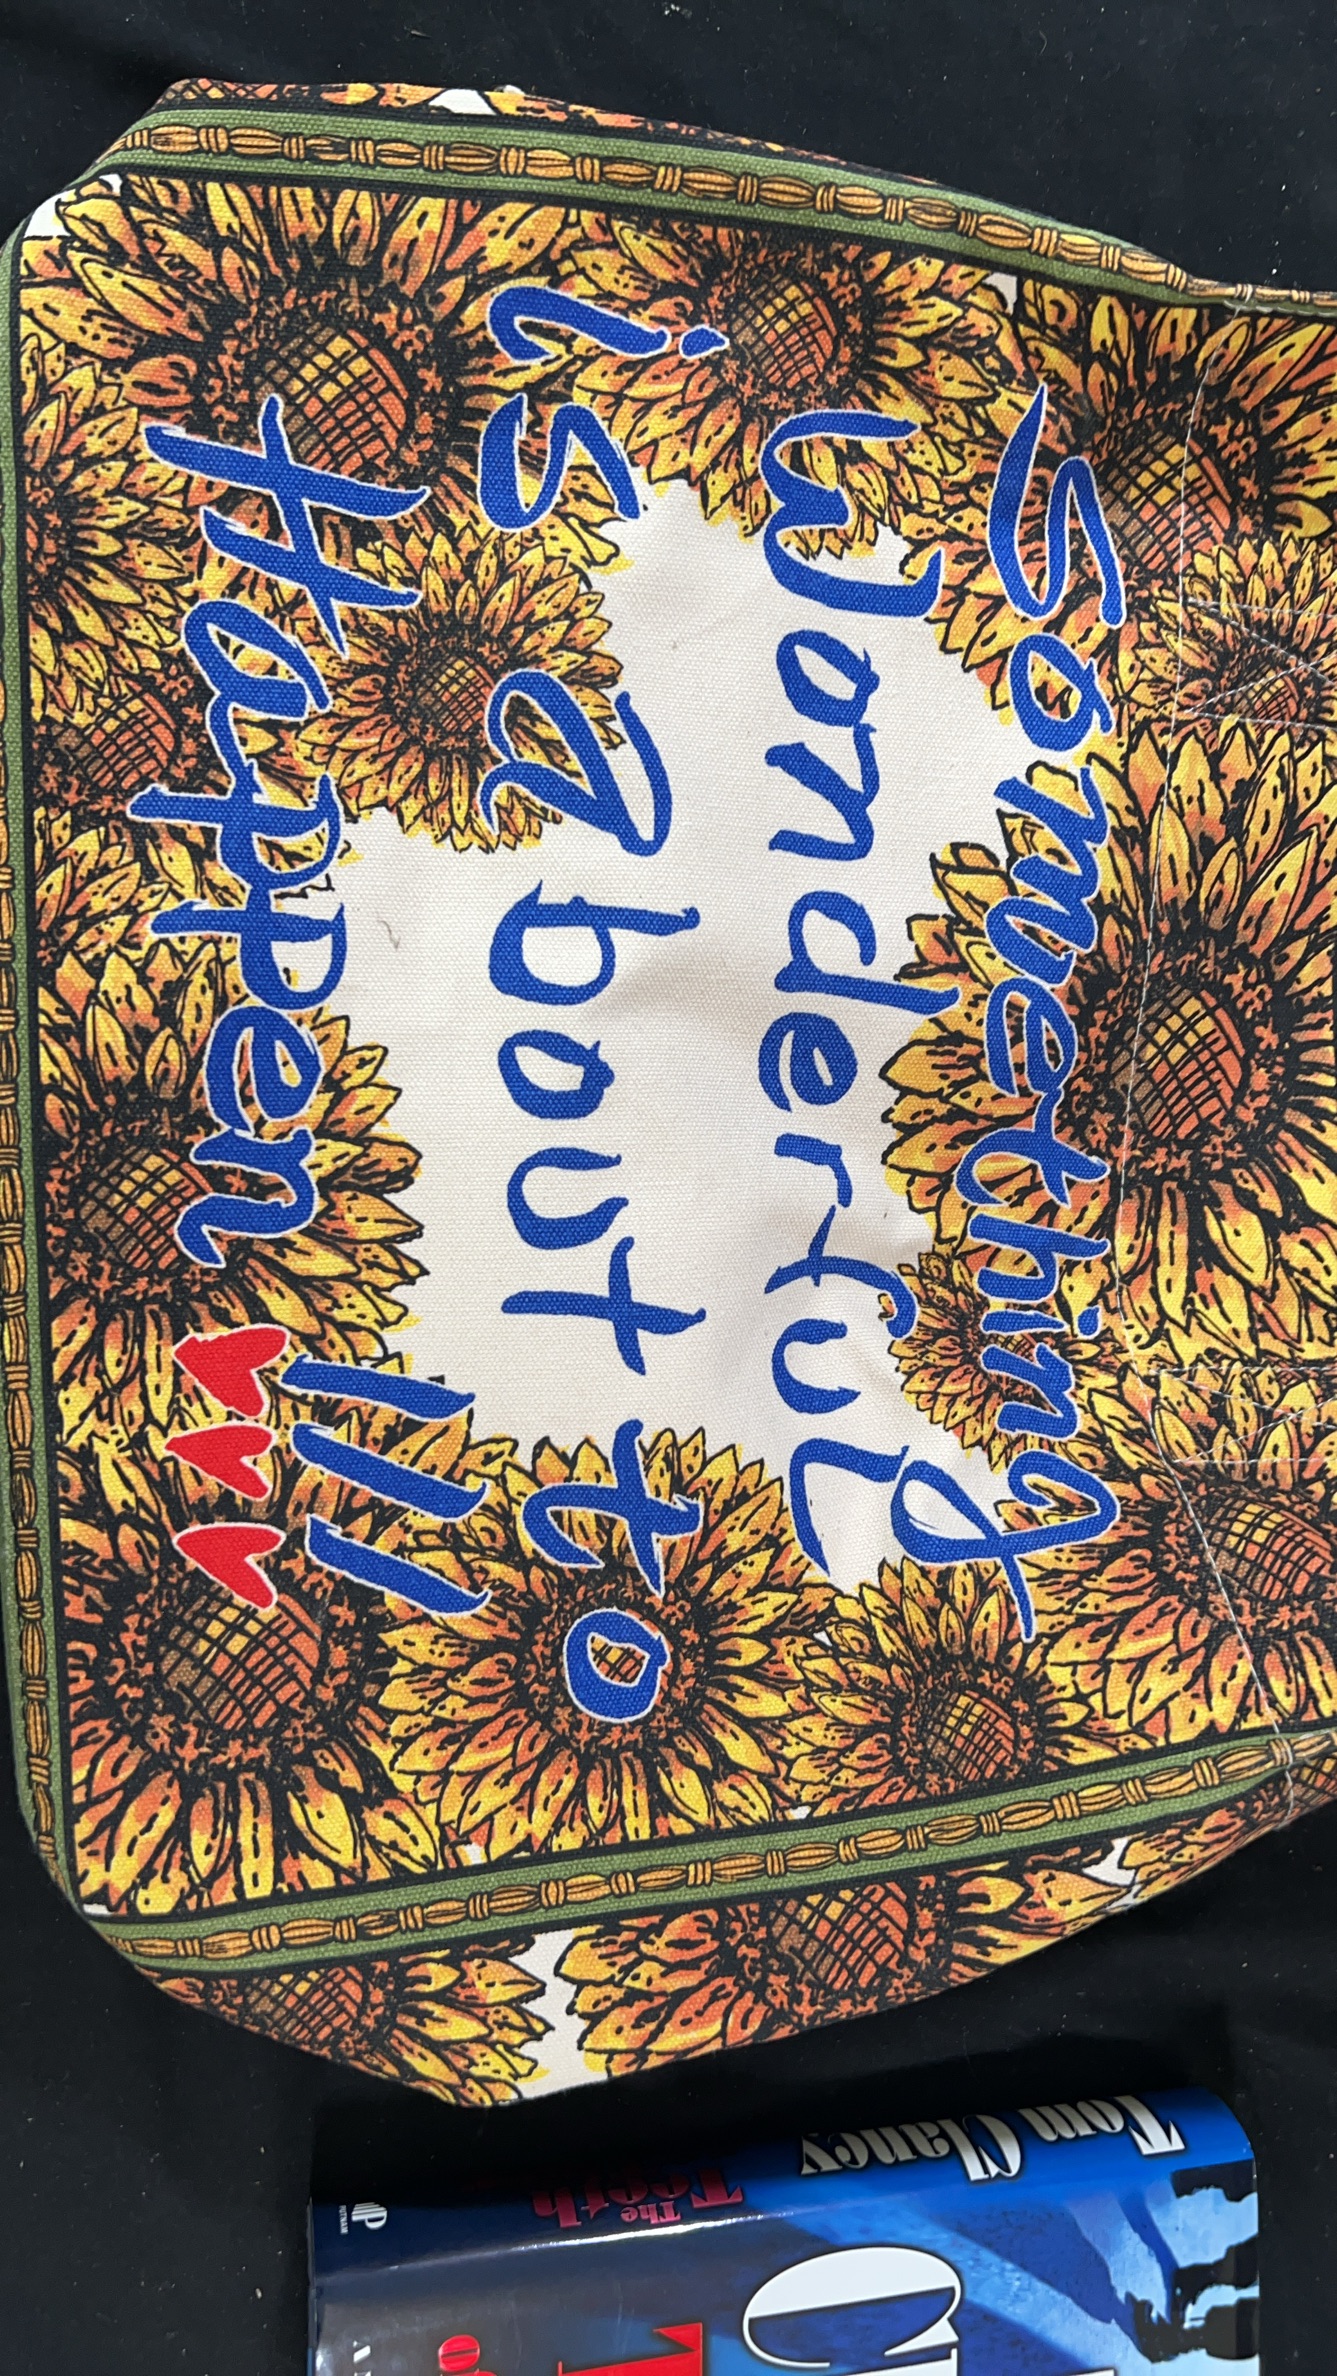 Something
Wonderful
is About to
Happen !!!
Tom Clancy
The
Teeth
PUTNAM